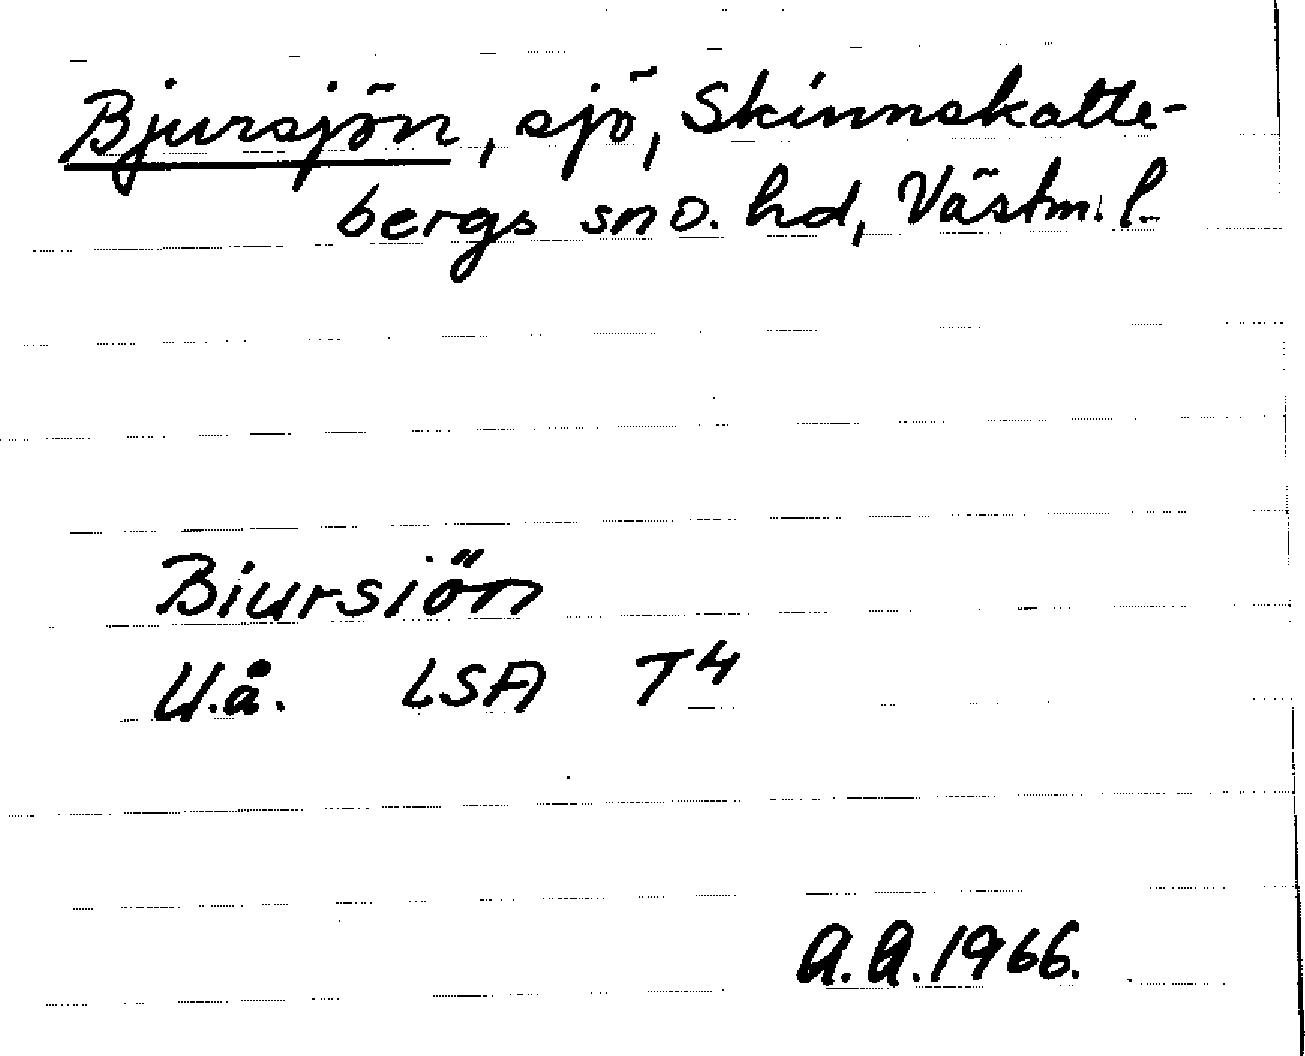 Bjursjön, sjö, Skinnskatte-
bergs sn o. hd, Västm. l.
Biursiön
U.å. LSA T4
A.A.1966.